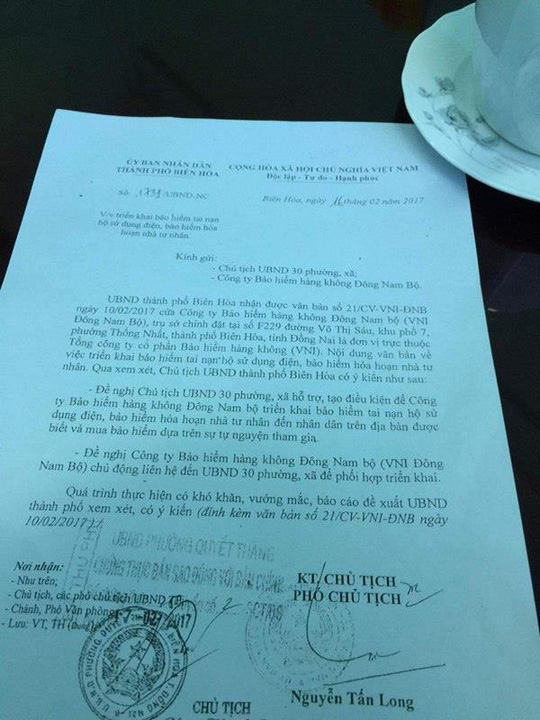 ỦY BAN NHÂN DÂN
THÀNH PHỐ BIÊN HÒA
CỘNG HÒA XÃ HỘI CHỦ NGHĨA VIỆT NAM
Độc lập - Tự do - Hạnh phúc
Số /UBND-NC
Biên Hòa, ngày 16 tháng 02 năm 2017
V/v triển khai bảo hiểm tai nạn
hộ sử dụng điện, bảo hiểm hỏa
hoạn nhà tư nhân.
Kính gửi:
- Chủ tịch UBND 30 phường, xã;
- Công ty Bảo hiểm hàng không Đông Nam Bộ.
UBND thành phố Biên Hòa nhận được văn bản số 21/CV-VNI-ĐNB
ngày 10/02/2017 của Công ty Bảo hiểm hàng không Đông Nam bộ (VNI
Đông Nam Bộ), trụ sở chính đặt tại số F229 đường Võ Thị Sáu, khu phố 7,
phường Thống Nhất, thành phố Biên Hòa, tỉnh Đồng Nai là đơn vị trực thuộc
Tổng công ty cổ phần Bảo hiểm hàng không (VNI). Nội dung văn bản về
việc triển khai bảo hiểm tai nạn hộ sử dụng điện, bảo hiểm hỏa hoạn nhà tư
nhân. Qua xem xét, Chủ tịch UBND thành phố Biên Hòa có ý kiến như sau:
- Đề nghị Chủ tịch UBND 30 phường, xã hỗ trợ, tạo điều kiện để Công
ty Bảo hiểm hàng không Đông Nam bộ triển khai bảo hiểm tai nạn hộ sử
dụng điện, bảo hiểm hỏa hoạn nhà tư nhân đến nhân dân trên địa bàn được
biết và mua bảo hiểm dựa trên sự tự nguyện tham gia.
- Đề nghị Công ty Bảo hiểm hàng không Đông Nam bộ (VNI Đông
Nam Bộ) chủ động liên hệ đến UBND 30 phường, xã để phối hợp triển khai.
Quá trình thực hiện có khó khăn, vướng mắc, báo cáo đề xuất UBND
thành phố xem xét, có ý kiến (đính kèm văn bản số 21/CV-VNI-ĐNB ngày
10/02/2017)./.
UBND PHƯỜNG QUYẾT THẮNG
CHỨNG THỰC BẢN SAO ĐÚNG VỚI BẢN CHÍNH
Nơi nhận:
- Như trên;
- Chủ tịch, các phó chủ tịch UBND TP;
- Chánh, Phó Văn phòng
- Lưu: VT, TH
KT. CHỦ TỊCH
PHÓ CHỦ TỊCH
SCT/BS
Nguyễn Tấn Long
CHỦ TỊCH